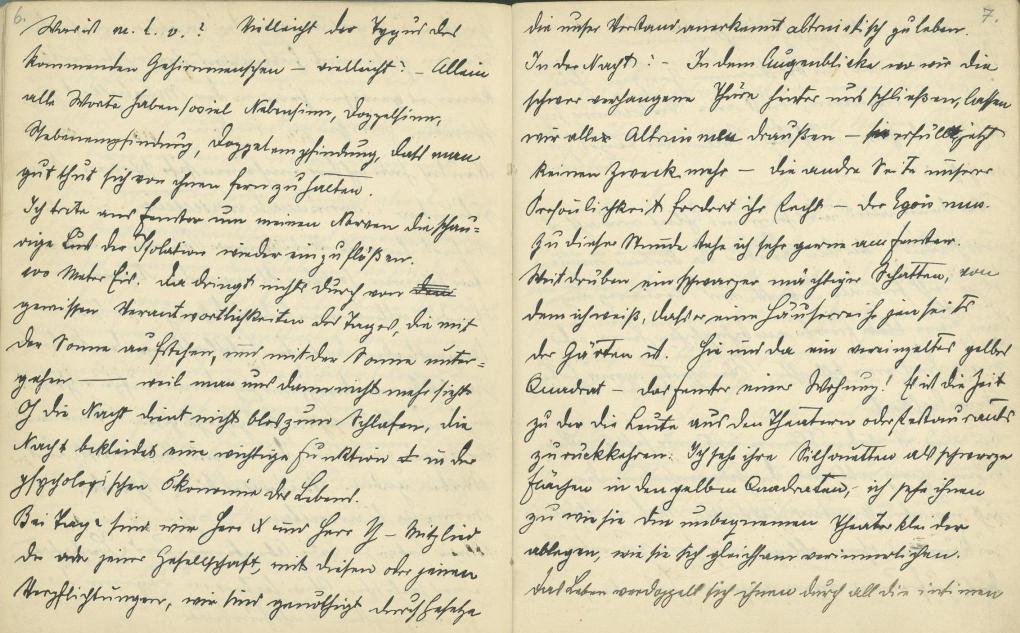 6.
Was ist m. l. v.? Vielleicht der Typus des
kommenden Gehirnmenschen – vielleicht? – Allein
alle Worte haben soviel Nebensinn, Doppelsinn,
Nebenempfindung, Doppelempfindung, daß man
gut thut sich von ihnen fern zu halten.
Ich trete ans Fenster um meinen Nerven die schau-
rige Lust der Isolation wieder einzuflößen.
100 Meter Eis. Da dringt nichts durch von den
gewissen Verantwortlichkeiten des Tages, die mit
der Sonne aufstehen, und mit der Sonne unter-
gehen —— weil man uns dann nicht mehr sieht
O die Nacht dient nicht blos zum Schlafen, die
Nacht bekleidet eine wichtige Funktion in der
psychologischen Ökonomie des Lebens.
Bei Tage sind wir Herr X und Herr Y – Mitglied
der oder jener Gesellschaft, mit diesen oder jenen
Verpflichtungen, wir sind genöthigt durch Gesetze
7.
die unser Verstand anerkennt altruistisch zu leben.
In der Nacht: – In dem Augenblicke wo wir die
schwer verhangene Thüre hinter uns schließen, lassen
wir alles Altruismen draußen – sie erfüllt jetzt
keinen Zweck mehr – die andre Seite unserer
Persönlichkeit fordert ihr Recht – der Egoismus.
Zu dieser Stunde stehe ich sehr gerne am Fenster.
Weit drüben ein schwarzer mächtiger Schatten, von
dem ich weiß, daß er eine Häuserreihe jenseits
der Gärten ist. Hie und da ein vereinzeltes gelbes
Quadrat – das Fenster einer Wohnung! Es ist die Zeit
zu der die Leute aus den Theatern oder Restaurants
zurückkehren. Ich sehe ihre Silhouetten als schwarze
Flächen in den gelben Quadraten, ich sehe ihnen
zu wie sie die unbequemen Theaterkleider
ablegen, wie sie sich gleichsam verinnerlichen.
Das Leben verdoppelt sich ihnen durch all die intimen